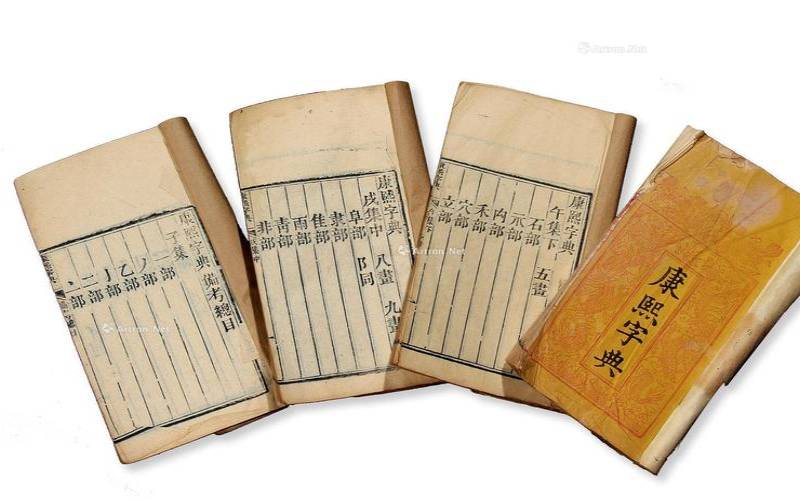 康熙字典 備考總目
子集
一部
丿部
乙部
亅部
二部
部
康熙字典
戌集中 八畫 九畫
阜部 阝同
隶部
隹部
雨部
靑部
非部
康熙字典
午集下 五畫
石部
示部
禸部
禾部
穴部
立部
康熙字典
Artron.Net
Artron.Net
Artron.Net